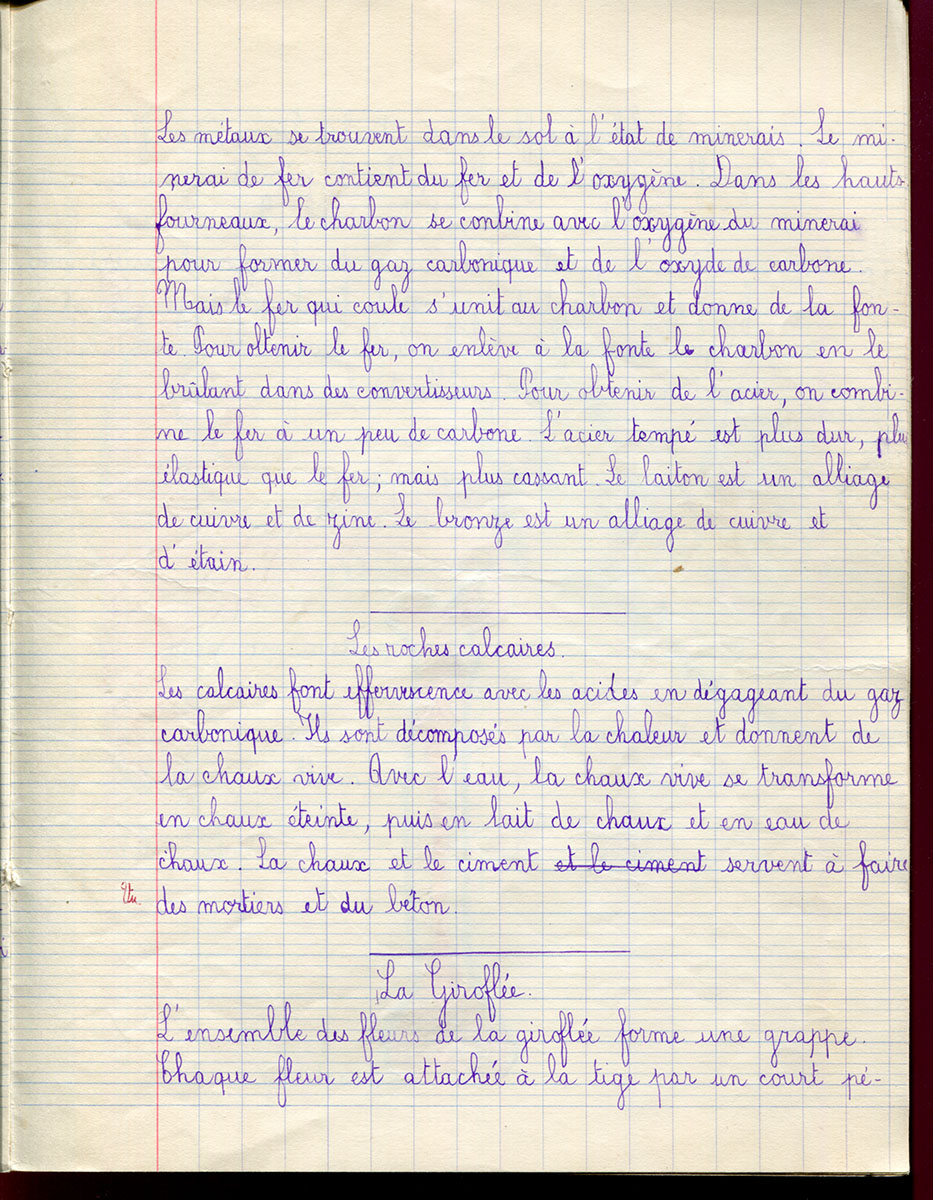 Les métaux se trouvent dans le sol à l'état de minerais. Le mi-
nerai de fer contient du fer et de l'oxygène. Dans les hauts
fourneaux, le charbon se conbine avec l'oxygène du minerai
pour former du gaz carbonique et de l'oxyde de carbone.
Mais le fer qui coule s'unit au charbon et donne de la fon-
te. Pour obtenir le fer, on enlève à la fonte le charbon en le
brûlant dans des convertisseurs. Pour obtenir de l'acier, on combi-
ne le fer à un peu de carbone. L'acier tempé est plus dur, plu
élastique que le fer ; mais plus cassant. Le laiton est un alliage
de cuivre et de zinc. Le bronze est un alliage de cuivre et
d'étain.
Les roches calcaires.
Les calcaires font effervescence avec les acides en dégageant du gaz
carbonique. Ils sont décomposés par la chaleur et donnent de
la chaux vive. Avec l'eau, la chaux vive se transforme
en chaux éteinte, puis en lait de chaux et en eau de
chaux. La chaux et le ciment et le ciment servent à faire
des mortiers et du béton.
La Giroflée.
L'ensemble des fleurs de la giroflée forme une grappe.
Chaque fleur est attachée à la tige par un court pé-